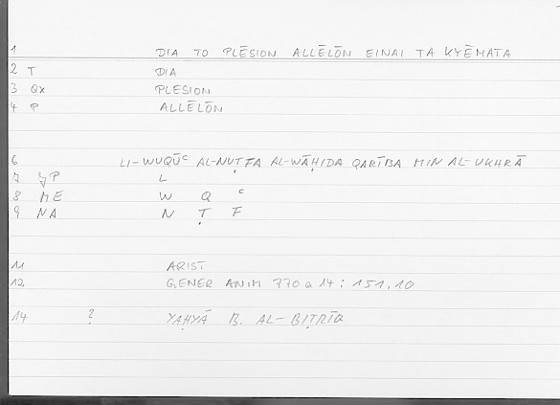 1 DIA TO PLĒSION ALLĒLŌN EINAI TA KYĒMATA
2 T DIA
3 QX PLESION
4 P ALLĒLŌN
6 LI-WUQŪᶜ AL-NUṬFA AL-WĀḤIDA QARĪBA MIN AL-UKHRĀ
7 P L
8 ME W Q ᶜ
9 NA N Ṭ F
11 ARIST
12 GENER ANIM 770 a 14 : 151.10
14 ? YAḤYĀ B. AL-BIṬRĪQ